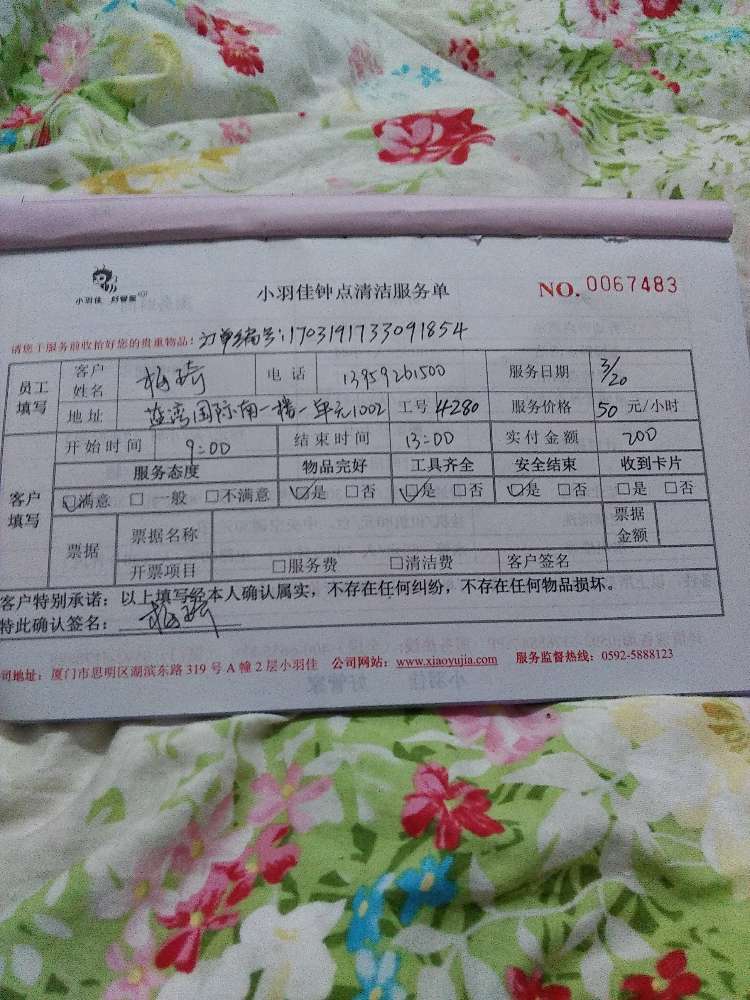 小羽佳 好管家
小羽佳钟点清洁服务单
NO. 0067483
请您于服务前收拾好您的贵重物品！ 订单编号:1703191733091854
员工填写 客户姓名 电话 13959261500 服务日期 3/20
地址 蓝湾国际南一楼一单元1002 工号 4280 服务价格 50 元/小时
客户填写 开始时间 9:00 结束时间 13:00 实付金额 200
服务态度 物品完好 工具齐全 安全结束 收到卡片
☑满意 □ 一般 □不满意 ☑是 □否 ☑是 □否 ☑是 □否 □是 □否
票据 票据名称 票据金额
开票项目 □服务费 □清洁费 客户签名
客户特别承诺：以上填写经本人确认属实，不存在任何纠纷，不存在任何物品损坏。
特此确认签名：
司地址：厦门市思明区湖滨东路 319 号 A 幢 2 层小羽佳 公司网站：www.xiaoyujia.com 服务监督热线：0592-5888123